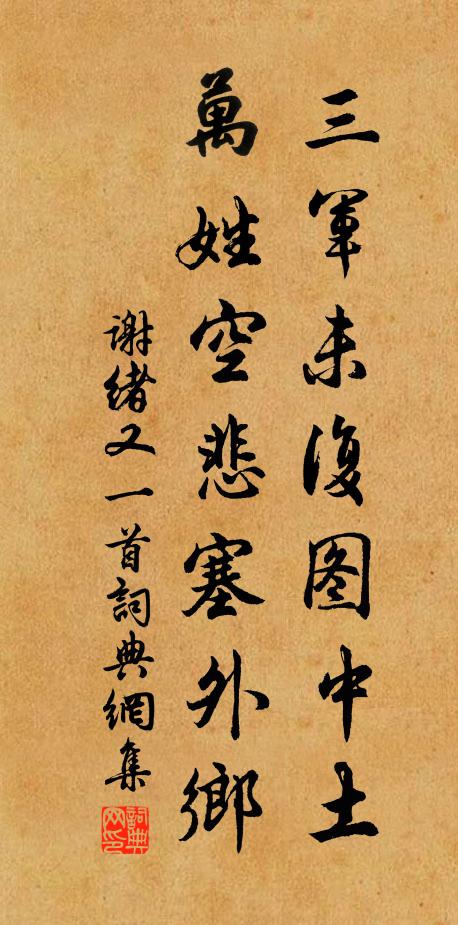 三軍未復图中土
萬姓空悲塞外鄉
謝緒又一首詞典網集
詞典网印